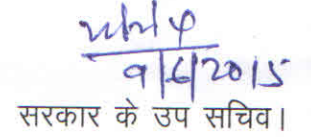 9/6/2015
सरकार के उप सचिव।